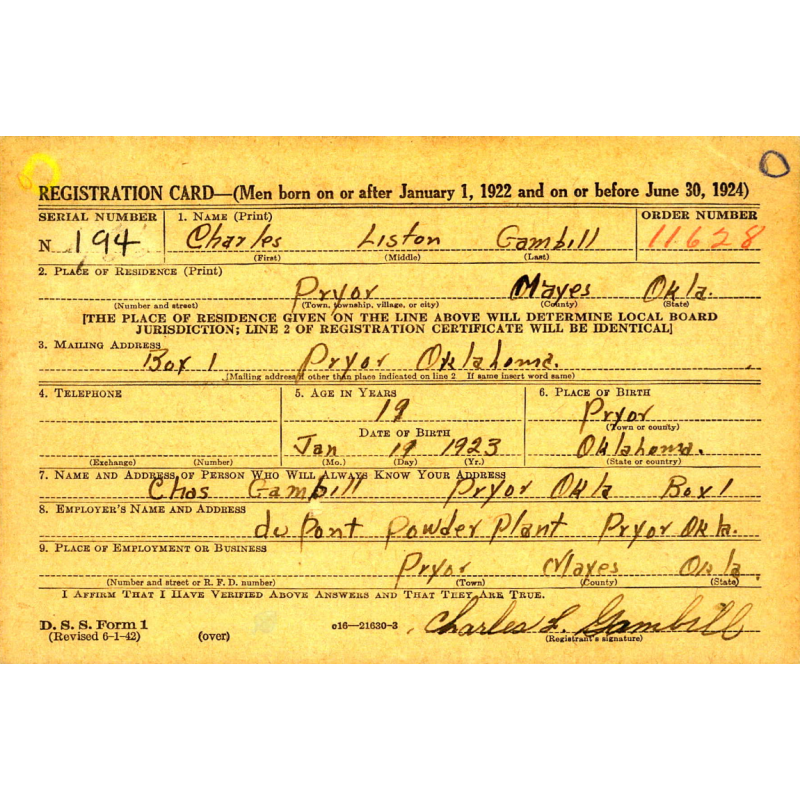 REGISTRATION CARD—(Men born on or after January 1, 1922 and on or before June 30, 1924)
SERIAL NUMBER 1. NAME (Print) ORDER NUMBER
N 194 Charles Liston Gambill 11628
(First) (Middle) (Last)
2. PLACE OF RESIDENCE (Print)
Pryor Mayes Okla.
(Number and street) (Town, township, village, or city) (County) (State)
[THE PLACE OF RESIDENCE GIVEN ON THE LINE ABOVE WILL DETERMINE LOCAL BOARD
JURISDICTION; LINE 2 OF REGISTRATION CERTIFICATE WILL BE IDENTICAL]
3. MAILING ADDRESS
Box 1 Pryor Oklahoma.
[Mailing address if other than place indicated on line 2 If same insert word same)
4. TELEPHONE 5. AGE IN YEARS 6. PLACE OF BIRTH
19 Pryor
(Town or county)
DATE OF BIRTH
Jan 19 1923 Oklahoma.
(Exchange) (Number) (Mo.) (Day) (Yr.) (State or country)
7. NAME AND ADDRESS OF PERSON WHO WILL ALWAYS KNOW YOUR ADDRESS
Chas Gambill Pryor Okla Box 1
8. EMPLOYER'S NAME AND ADDRESS
du Pont Powder Plant Pryor Okla.
9. PLACE OF EMPLOYMENT OR BUSINESS
Pryor Mayes Okla.
(Number and street or R. F. D. number) (Town) (County) (State)
I AFFIRM THAT I HAVE VERIFIED ABOVE ANSWERS AND THAT THEY ARE TRUE.
D. S. S. Form 1
(Revised 6-1-42) (over) c16—21630-3 Charles L. Gambill
(Registrant's signature)